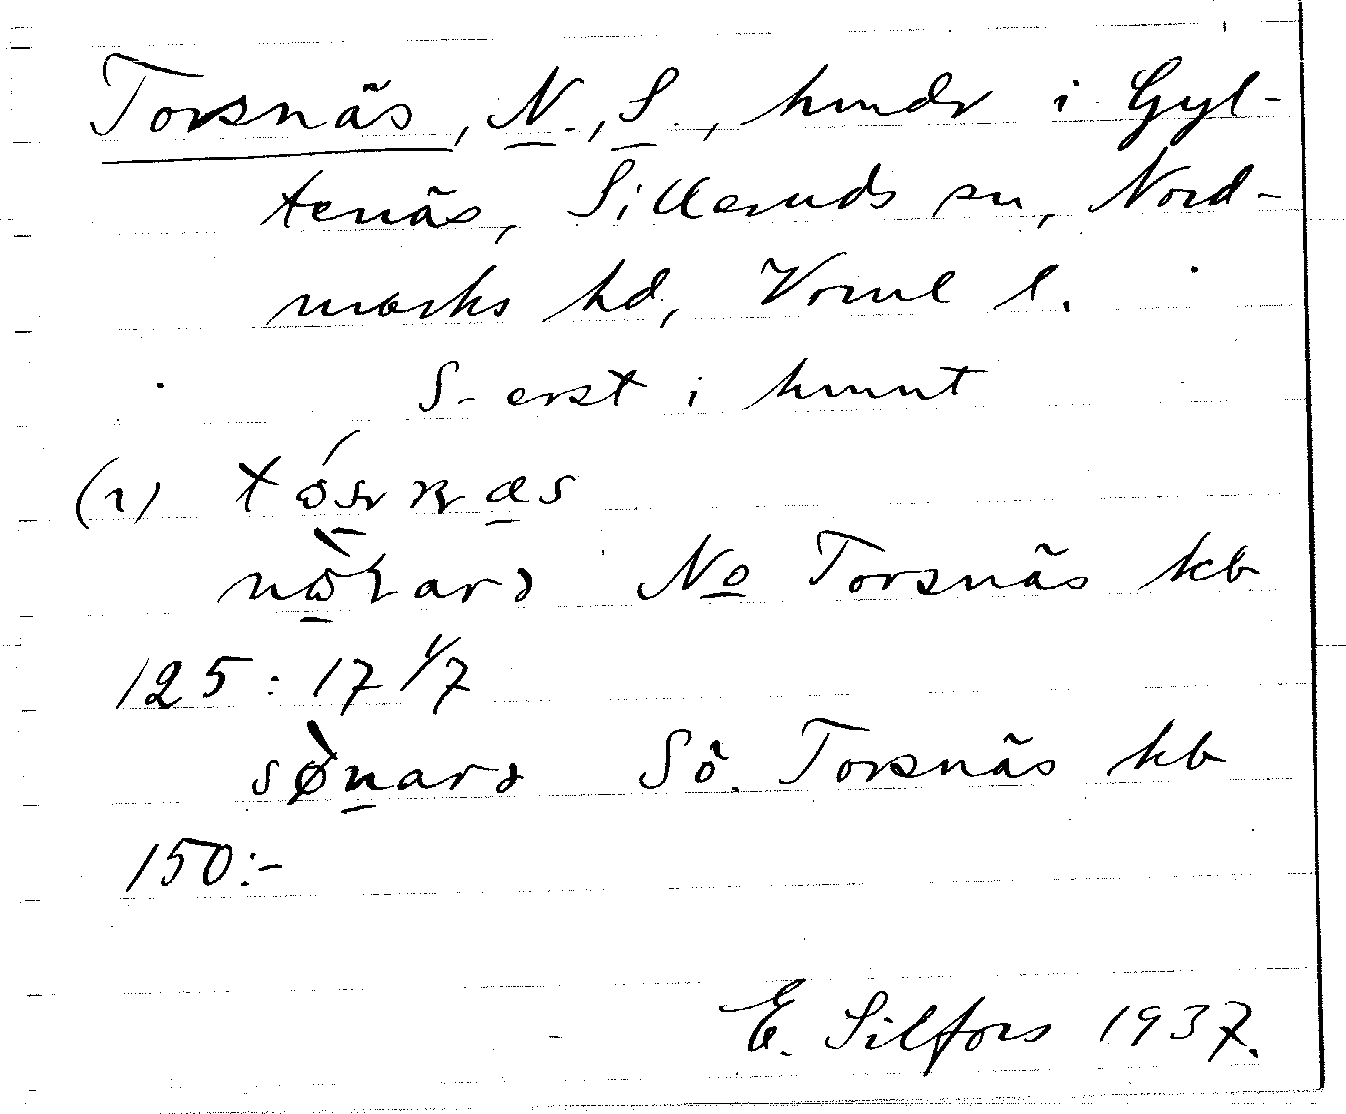 Torsnäs, N., S., hmdr i Gyl-
tenäs, Silleruds sn, Nord-
marks hd, Värml l.
S-erst i hmnt
(1) tósnæs
nò̱ɽarə No Torsnäs kb
125:17 1/7
sø̀narə Sö. Torsnäs kb
150:-
E. Silfors 1937.